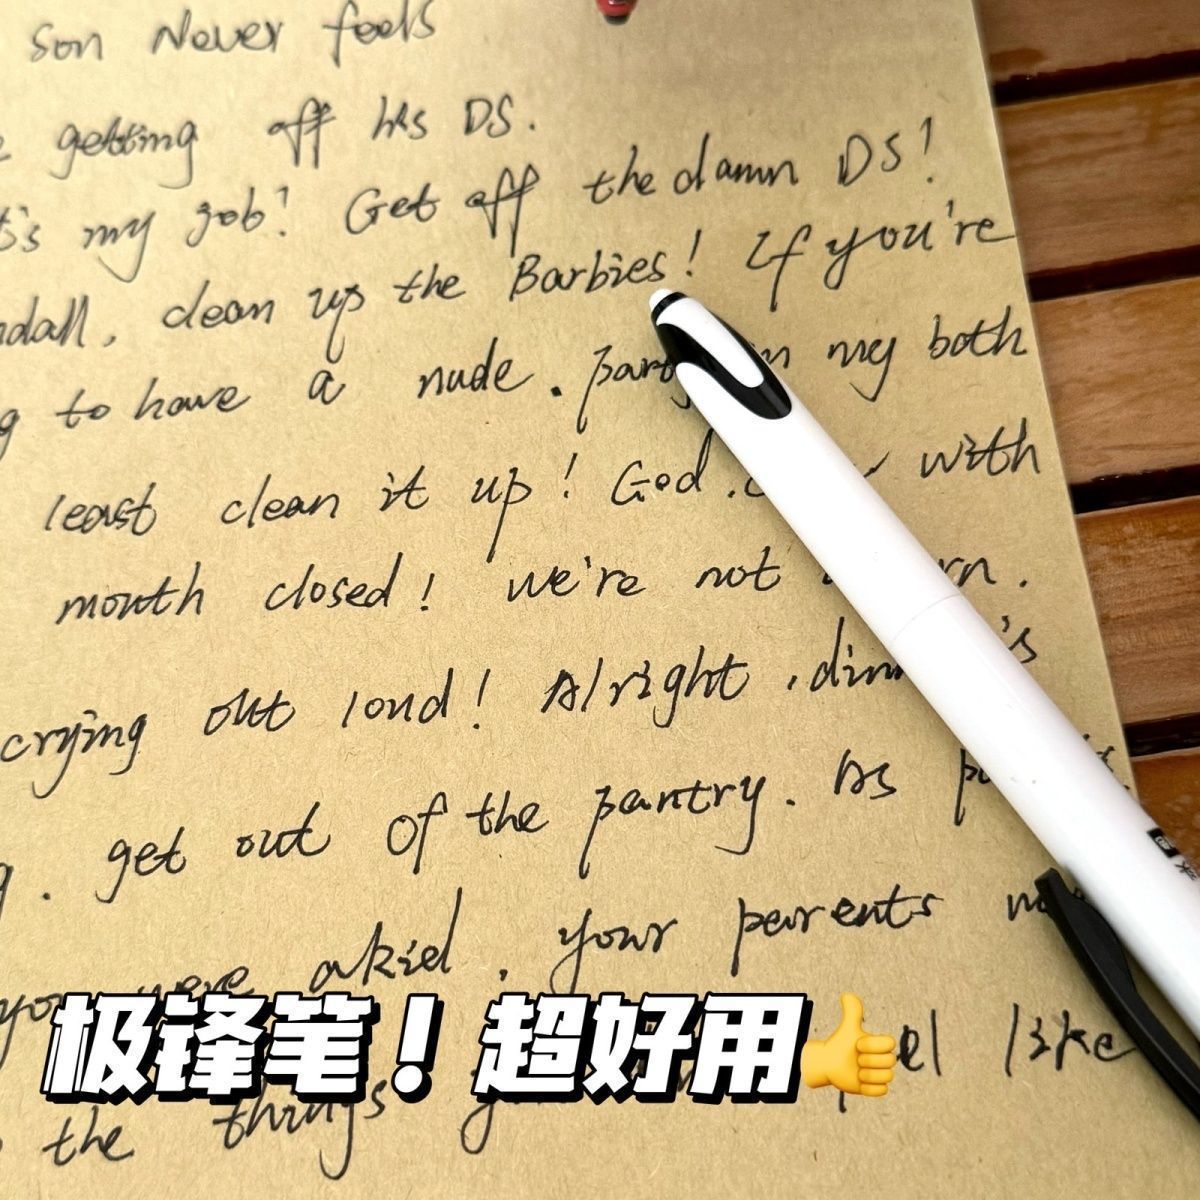 son Never feels
getting off his DS.
t's my job! Get off the damn DS!
ndall, clean up the Barbies! If you're
g to have a nude. party in my both
least clean it up! God. with
mouth closed! we're not
crying out loud! Alright, 's
g. get out of the pantry. As
you were akid, your parents
极锋笔！超好用👍
like
the things